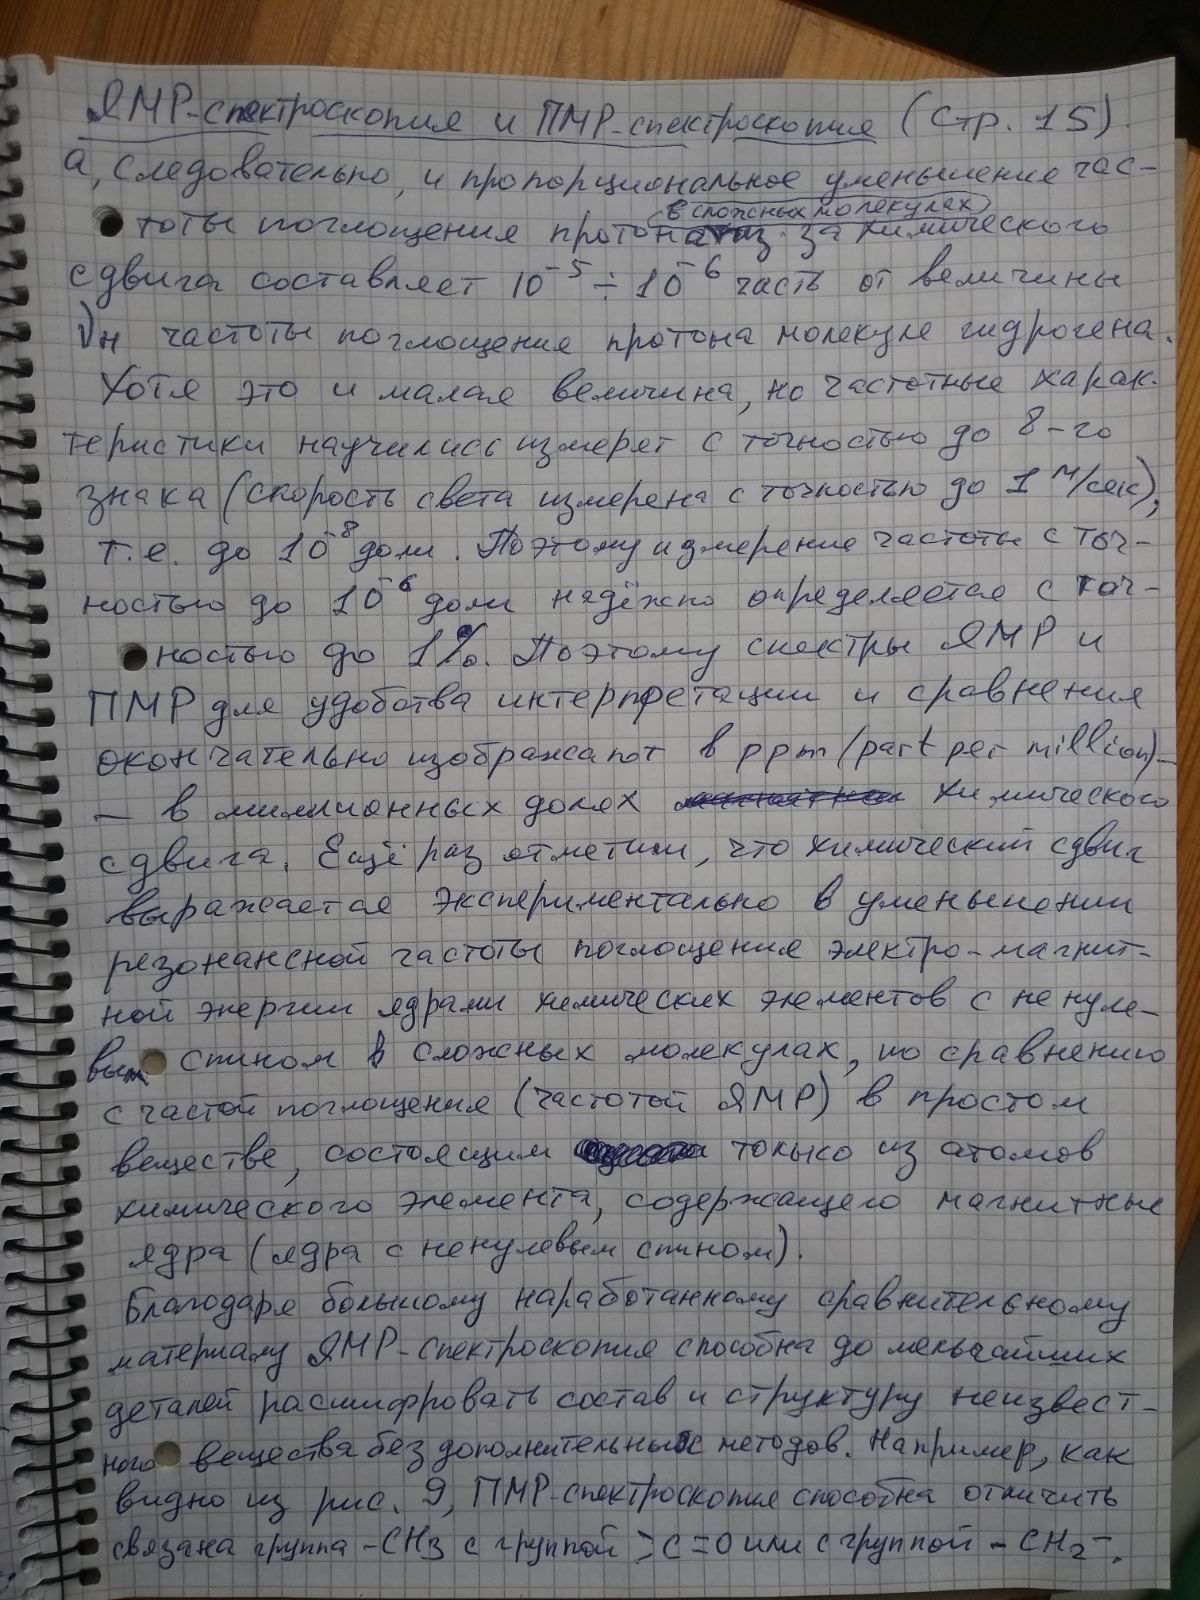 ЯМР-спектроскопия и ПМР-спектроскопия (стр. 15).
а, следовательно, и пропорциональное уменьшение час-
(в сложных молекулах)
тоты поглощения протона из-за химического
сдвига составляет 10⁻⁵ ÷ 10⁻⁶ часть от величины
νн частоты поглощение протона молекуле гидрогена.
Хотя это и малая величина, но частотные харак-
теристики научились измерят с точностью до 8-го
знака (скорость света измерена с точностью до 1 м/сек),
т.е. до 10⁻⁸ доли. Поэтому измерение частоты с точ-
ностью до 10⁻⁶ доли надёжно определяется с точ-
ностью до 1%. Поэтому спектры ЯМР и
ПМР для удобства интерпретации и сравнения
окончательно изображают в ppm (part per million) –
– в миллионных долях химического
сдвига. Ещё раз отметим, что химический сдвиг
выражается экспериментально в уменьшении
резонансной частоты поглощения электро-магнит-
ной энергии ядрами химических элементов с ненуле-
вым спином в сложных молекулах, по сравнению
с частой поглощения (частотой ЯМР) в простом
веществе, состоящим только из атомов
химического элемента, содержащего магнитные
ядра (ядра с ненулевым спином).
Благодаря большому наработанному сравнительному
материалу ЯМР-спектроскопия способна до мельчайших
деталей расшифровать состав и структуру неизвест-
ного вещества без дополнительных методов. Например, как
видно из рис. 9, ПМР-спектроскопия способна отличить
связана группа -CH3 с группой >C=O или с группой -CH2-.